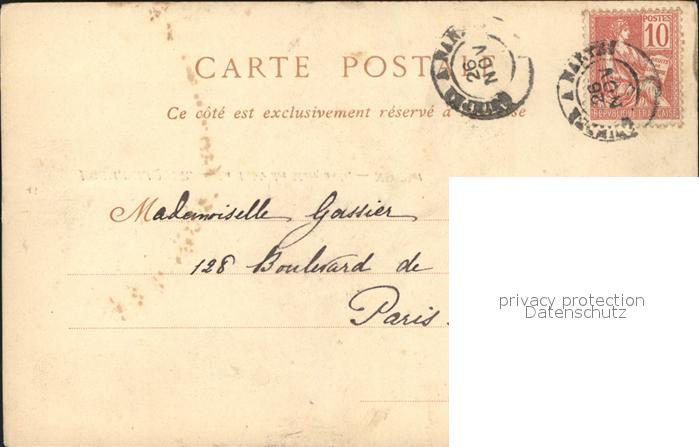 CARTE POSTALE
Ce côté est exclusivement réservé à l'adresse
POSTES
10
RÉPUBLIQUE FRANÇAISE
26
NOV
26
NOV
Mademoiselle Gassier
128 Boulevard de
Paris.
privacy protection
Datenschutz